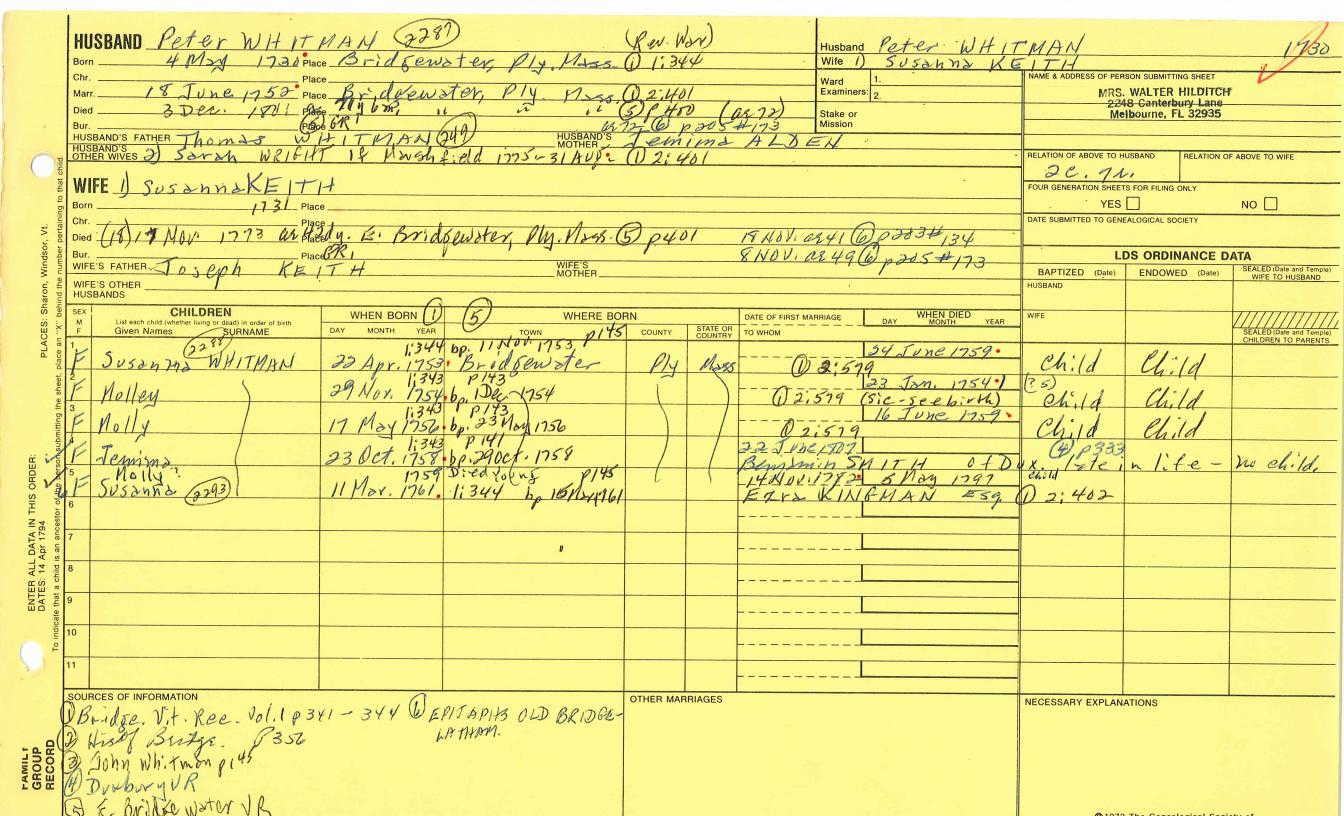 HUSBAND Peter WHITMAN 2287 (Rev. War)
Born 4 May 1730 Place Bridgewater, Ply. Mass. ① 1:344
Chr. Place
Marr. 18 June 1752 Place Bridgewater, Ply. Mass. ① 2:401
Died 3 Dec. 1801 Place " " ⑤ p 400 (ae 72)
Bur. Place GR1 ae 72 ⑥ p205 #173
HUSBAND'S FATHER Thomas WHITMAN 249 HUSBAND'S MOTHER Jemima ALDEN
HUSBAND'S OTHER WIVES 2) Sarah WRIGHT of Marshfield 1775-31 Aug. ① 2:401
Husband Peter WHITMAN 1730
Wife 1) Susanna KEITH
Ward Examiners: 1.
2
Stake or Mission
NAME & ADDRESS OF PERSON SUBMITTING SHEET
MRS. WALTER HILDITCH
2248 Canterbury Lane
Melbourne, FL 32935
RELATION OF ABOVE TO HUSBAND RELATION OF ABOVE TO WIFE
FOUR GENERATION SHEETS FOR FILING ONLY
YES NO
DATE SUBMITTED TO GENEALOGICAL SOCIETY
WIFE 1) Susanna KEITH
Born 1731 Place
Chr. Place
Died (18) 17 Nov 1773 Place E. Bridgewater, Ply. Mass. ⑤ p401 19 Nov. ae 41 ⑥ p203# 134
Bur. Place GR1 8 Nov. ae 49 ⑥ p205 #173
WIFE'S FATHER Joseph KEITH WIFE'S MOTHER
WIFE'S OTHER HUSBANDS
LDS ORDINANCE DATA
BAPTIZED (Date) ENDOWED (Date) SEALED (Date and Temple) WIFE TO HUSBAND
HUSBAND
WIFE
SEALED (Date and Temple) CHILDREN TO PARENTS
SEX M F
CHILDREN
List each child (whether living or dead) in order of birth
Given Names SURNAME
WHEN BORN ① ⑤ WHERE BORN
DAY MONTH YEAR TOWN COUNTY STATE OR COUNTRY
DATE OF FIRST MARRIAGE
TO WHOM
WHEN DIED
DAY MONTH YEAR
1 2288 1:344 bp. 11 Nov. 1753 p145 24 June 1759
F Susanna WHITMAN 22 Apr. 1753 Bridgewater Ply Mass ① 2:579 Child Child
2 1:343 p143 23 Jan. 1754 (?5)
F Molley 29 Nov. 1754 bp. 1 Dec 1754 ① 2:579 (sic-see birth) Child Child
3 1:343 p143 16 June 1759
F Molly 17 May 1756 bp. 23 May 1756 ① 2:579 Child Child
4 1:343 p141 22 June 1807 ④ p333
F Jemima 23 Oct. 1758 bp. 29 Oct. 1758 Benjamin SMITH of Dux. late in life - no child.
5 Molly 1759 Died young p145 14 Nov. 1782 5 May 1797 Child
F Susanna 2293 11 Mar. 1761 1:344 bp 15 Mar 1761 Ezra KINGMAN Esq ① 2:402
6
7
8
9
10
11
SOURCES OF INFORMATION
① Bridge. Vit. Rec. Vol. 1 p 341 - 344 ⑥ EPITAPHS OLD BRIDGE-
LATHAM.
② Hist of Bridge. p 356
③ John Whitman p 145
④ Duxbury VR
⑤ E. Bridgewater VR
OTHER MARRIAGES
NECESSARY EXPLANATIONS
FAMILY GROUP RECORD
ENTER ALL DATA IN THIS ORDER:
DATES: 14 Apr 1794
PLACES: Sharon, Windsor, Vt.
To indicate that a child is an ancestor of the person submitting the sheet, place an "X" behind the number pertaining to that child
The Genealogical Society of